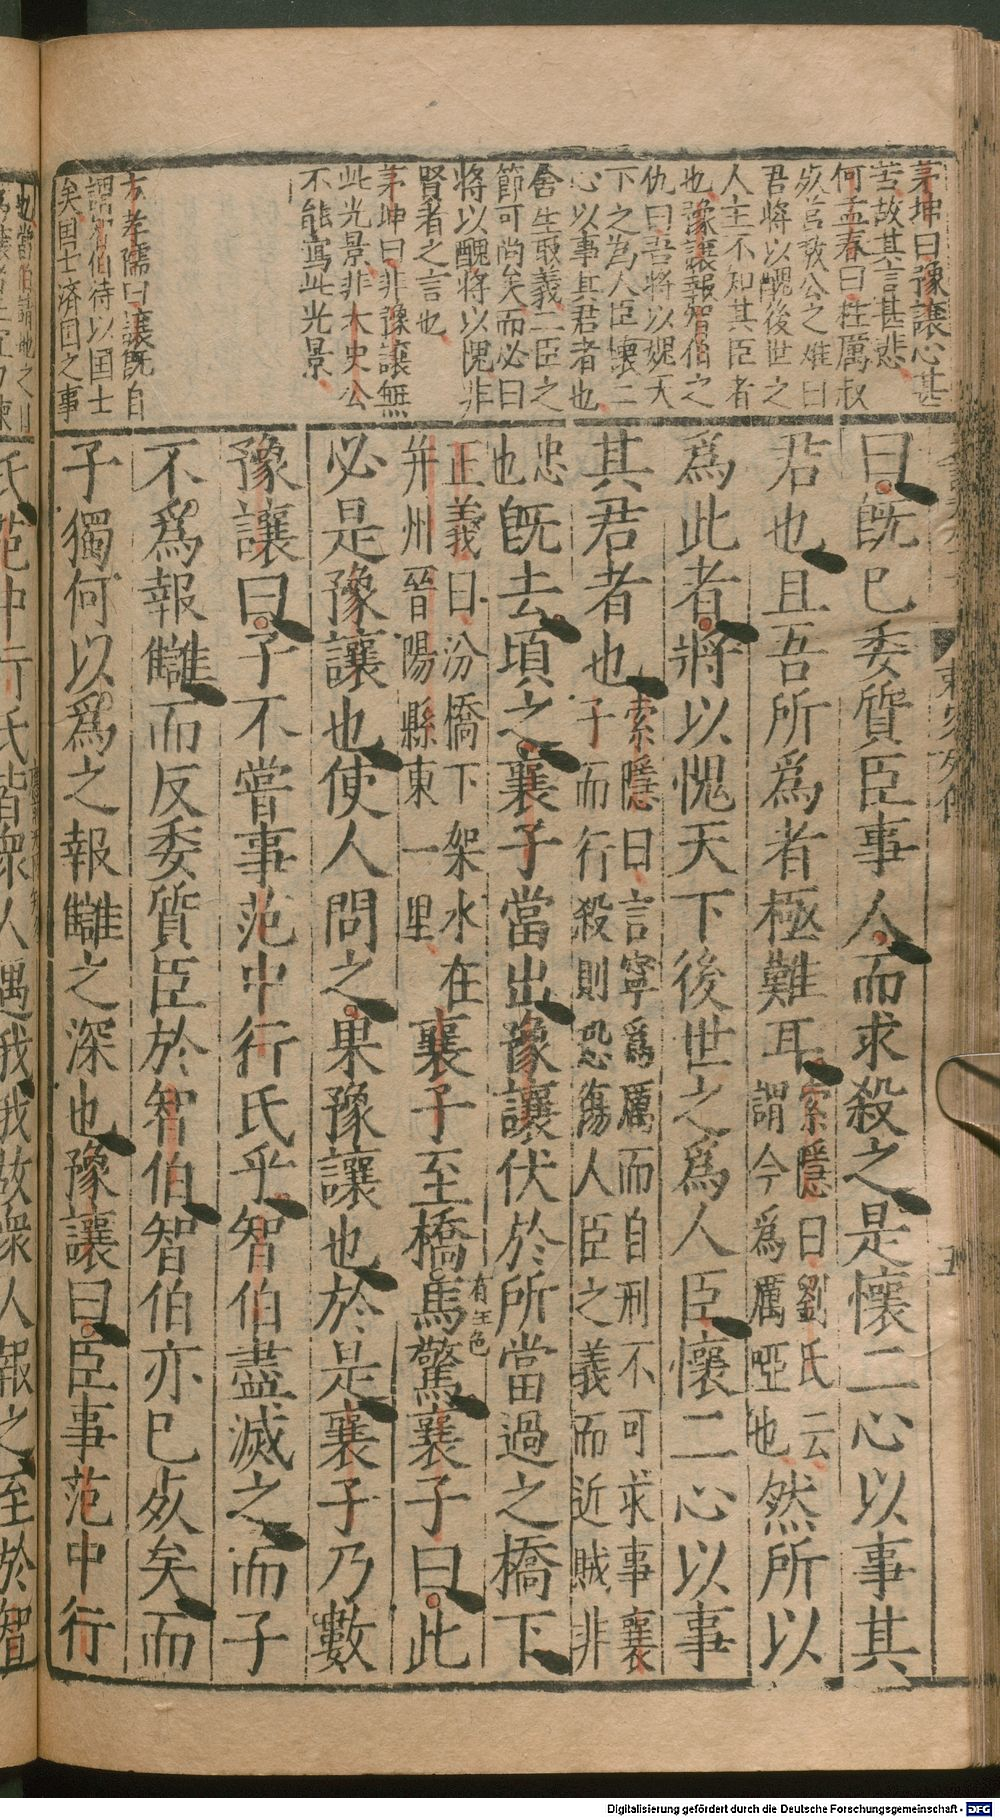 茅坤曰豫讓心甚
苦故其言甚悲
何孟春曰柱厲叔
死莒敖公之難曰
吾將以醜後世之
人主不知其臣者
也豫讓報智伯之
仇曰吾將以媿天
下之為人臣懷二
心以事其君者也
舍生取義二臣之
節可尚矣而必曰
將以醜將以愧非
賢者之言也
茅坤曰非豫讓無
此光景非太史公
不能寫此光景
方孝孺曰讓既自
謂智伯待以国士
矣国士済国之事
曰旣已委質臣事人而求殺之是懷二心以事其
君也且吾所爲者極難耳
索隱曰劉氏云
謂今爲厲啞也
然所以
爲此者將以愧天下後世之爲人臣懷二心以事
其君者也
索隱曰言寧爲厲而自刑不可求事襄
子而行殺則恐傷人臣之義而近賊非
忠
也
旣去頃之襄子當出豫讓伏於所當過之橋下
正義曰汾橋下架水在
幷州晉陽縣東一里
襄子至橋馬驚襄子曰此
有至色
必是豫讓也使人問之果豫讓也於是襄子乃數
豫讓曰子不嘗事范中行氏乎智伯盡滅之而子
不爲報讎而反委質臣於智伯智伯亦已死矣而
子獨何以爲之報讎之深也豫讓曰臣事范中行
氏范中行氏皆衆人遇我我故衆人報之至於智
東 列傳
五
Digitalisierung gefördert durch die Deutsche Forschungsgemeinschaft - DFG